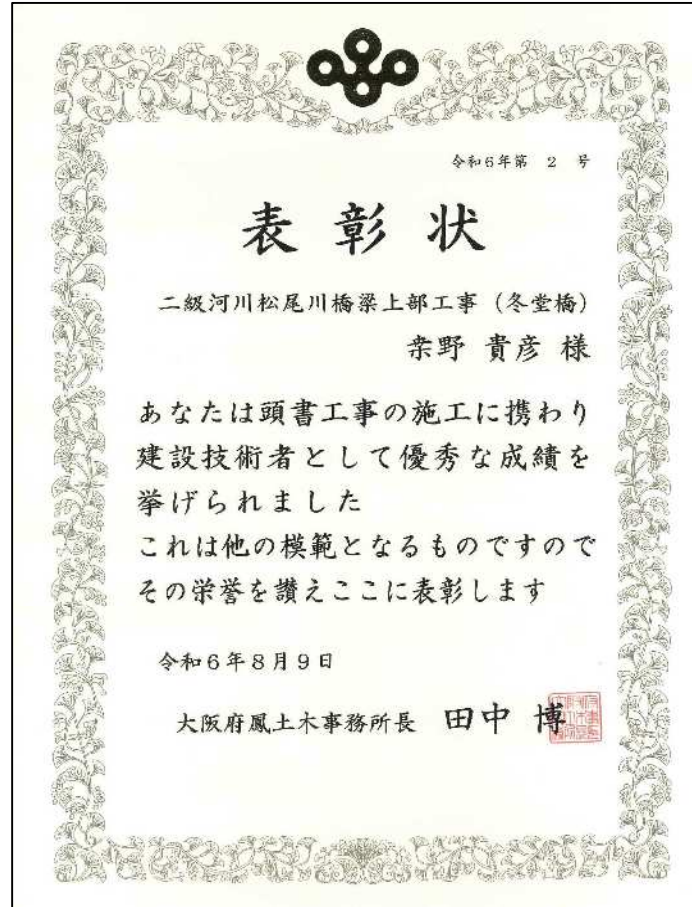 令和6年第 2 号
表彰状
二級河川松尾川橋梁上部工事（冬堂橋）
桒野 貴彦 様
あなたは頭書工事の施工に携わり
建設技術者として優秀な成績を
挙げられました
これは他の模範となるものですので
その栄誉を讃えここに表彰します
令和6年8月9日
大阪府鳳土木事務所長 田中 博